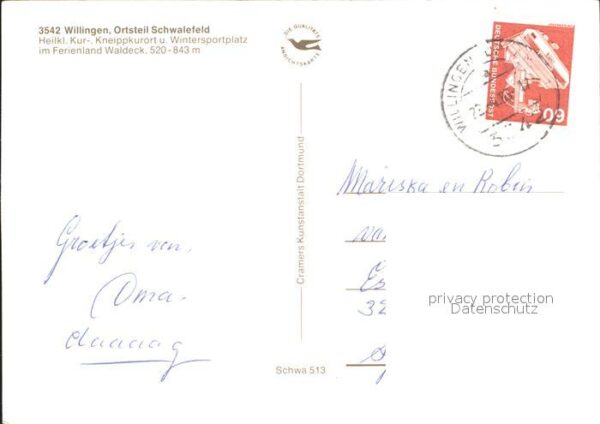 3542 Willingen, Ortsteil Schwalefeld
Heilkl. Kur-, Kneippkurort u. Wintersportplatz
im Ferienland Waldeck. 520-843 m
DIE QUALITÄTS
ANSICHTSKARTE
DEUTSCHE BUNDESPOST
60
WILLINGEN
Cramers Kunstanstalt Dortmund
Mariska en Robin
va
Es
32
privacy protection
Datenschutz
Groetjes van
Oma.
daaaag
Schwa 513